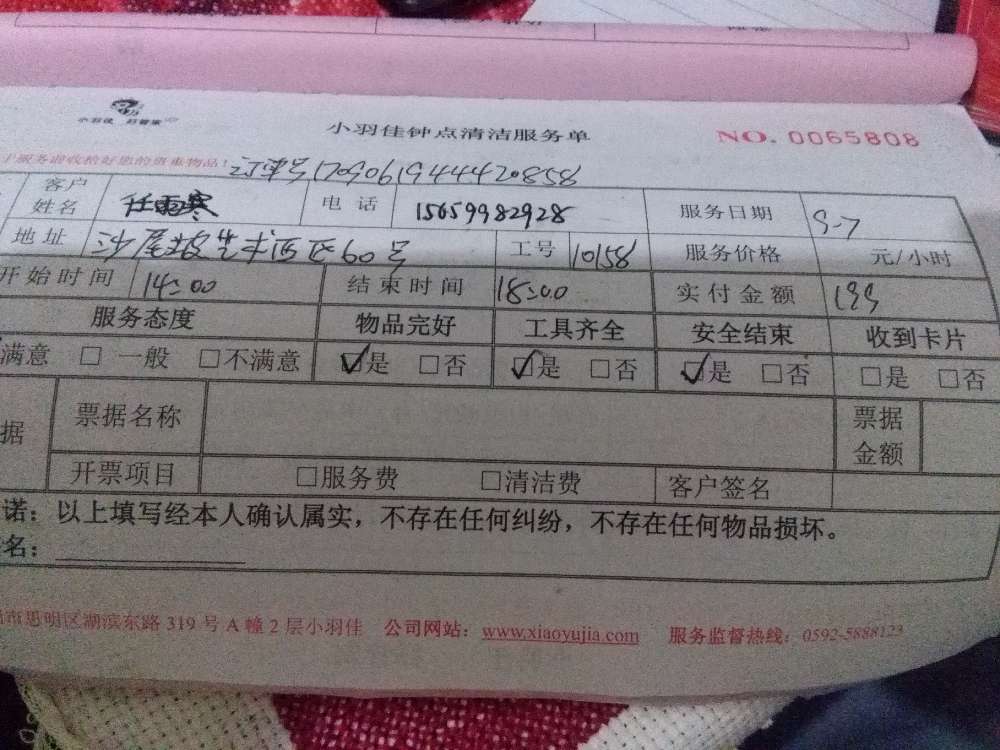 小羽佳 好管家
小羽佳钟点清洁服务单
NO. 0065808
服务前收检好您的贵重物品！
17090619444420858
客户姓名 任雨寒 电话 15659982928 服务日期 9-7
地址 60号 工号 10158 服务价格 元/小时
开始时间 14:00 结束时间 18:00 实付金额 199
服务态度 物品完好 工具齐全 安全结束 收到卡片
满意 □ 一般 □不满意 ☑是 □否 ☑是 □否 ☑是 □否 □是 □否
据 票据名称 票据金额
开票项目 □服务费 □清洁费 客户签名
诺：以上填写经本人确认属实，不存在任何纠纷，不存在任何物品损坏。
名：
市思明区湖滨东路 319 号 A 幢 2 层小羽佳 公司网站：www.xiaoyujia.com 服务监督热线：0592-5888123